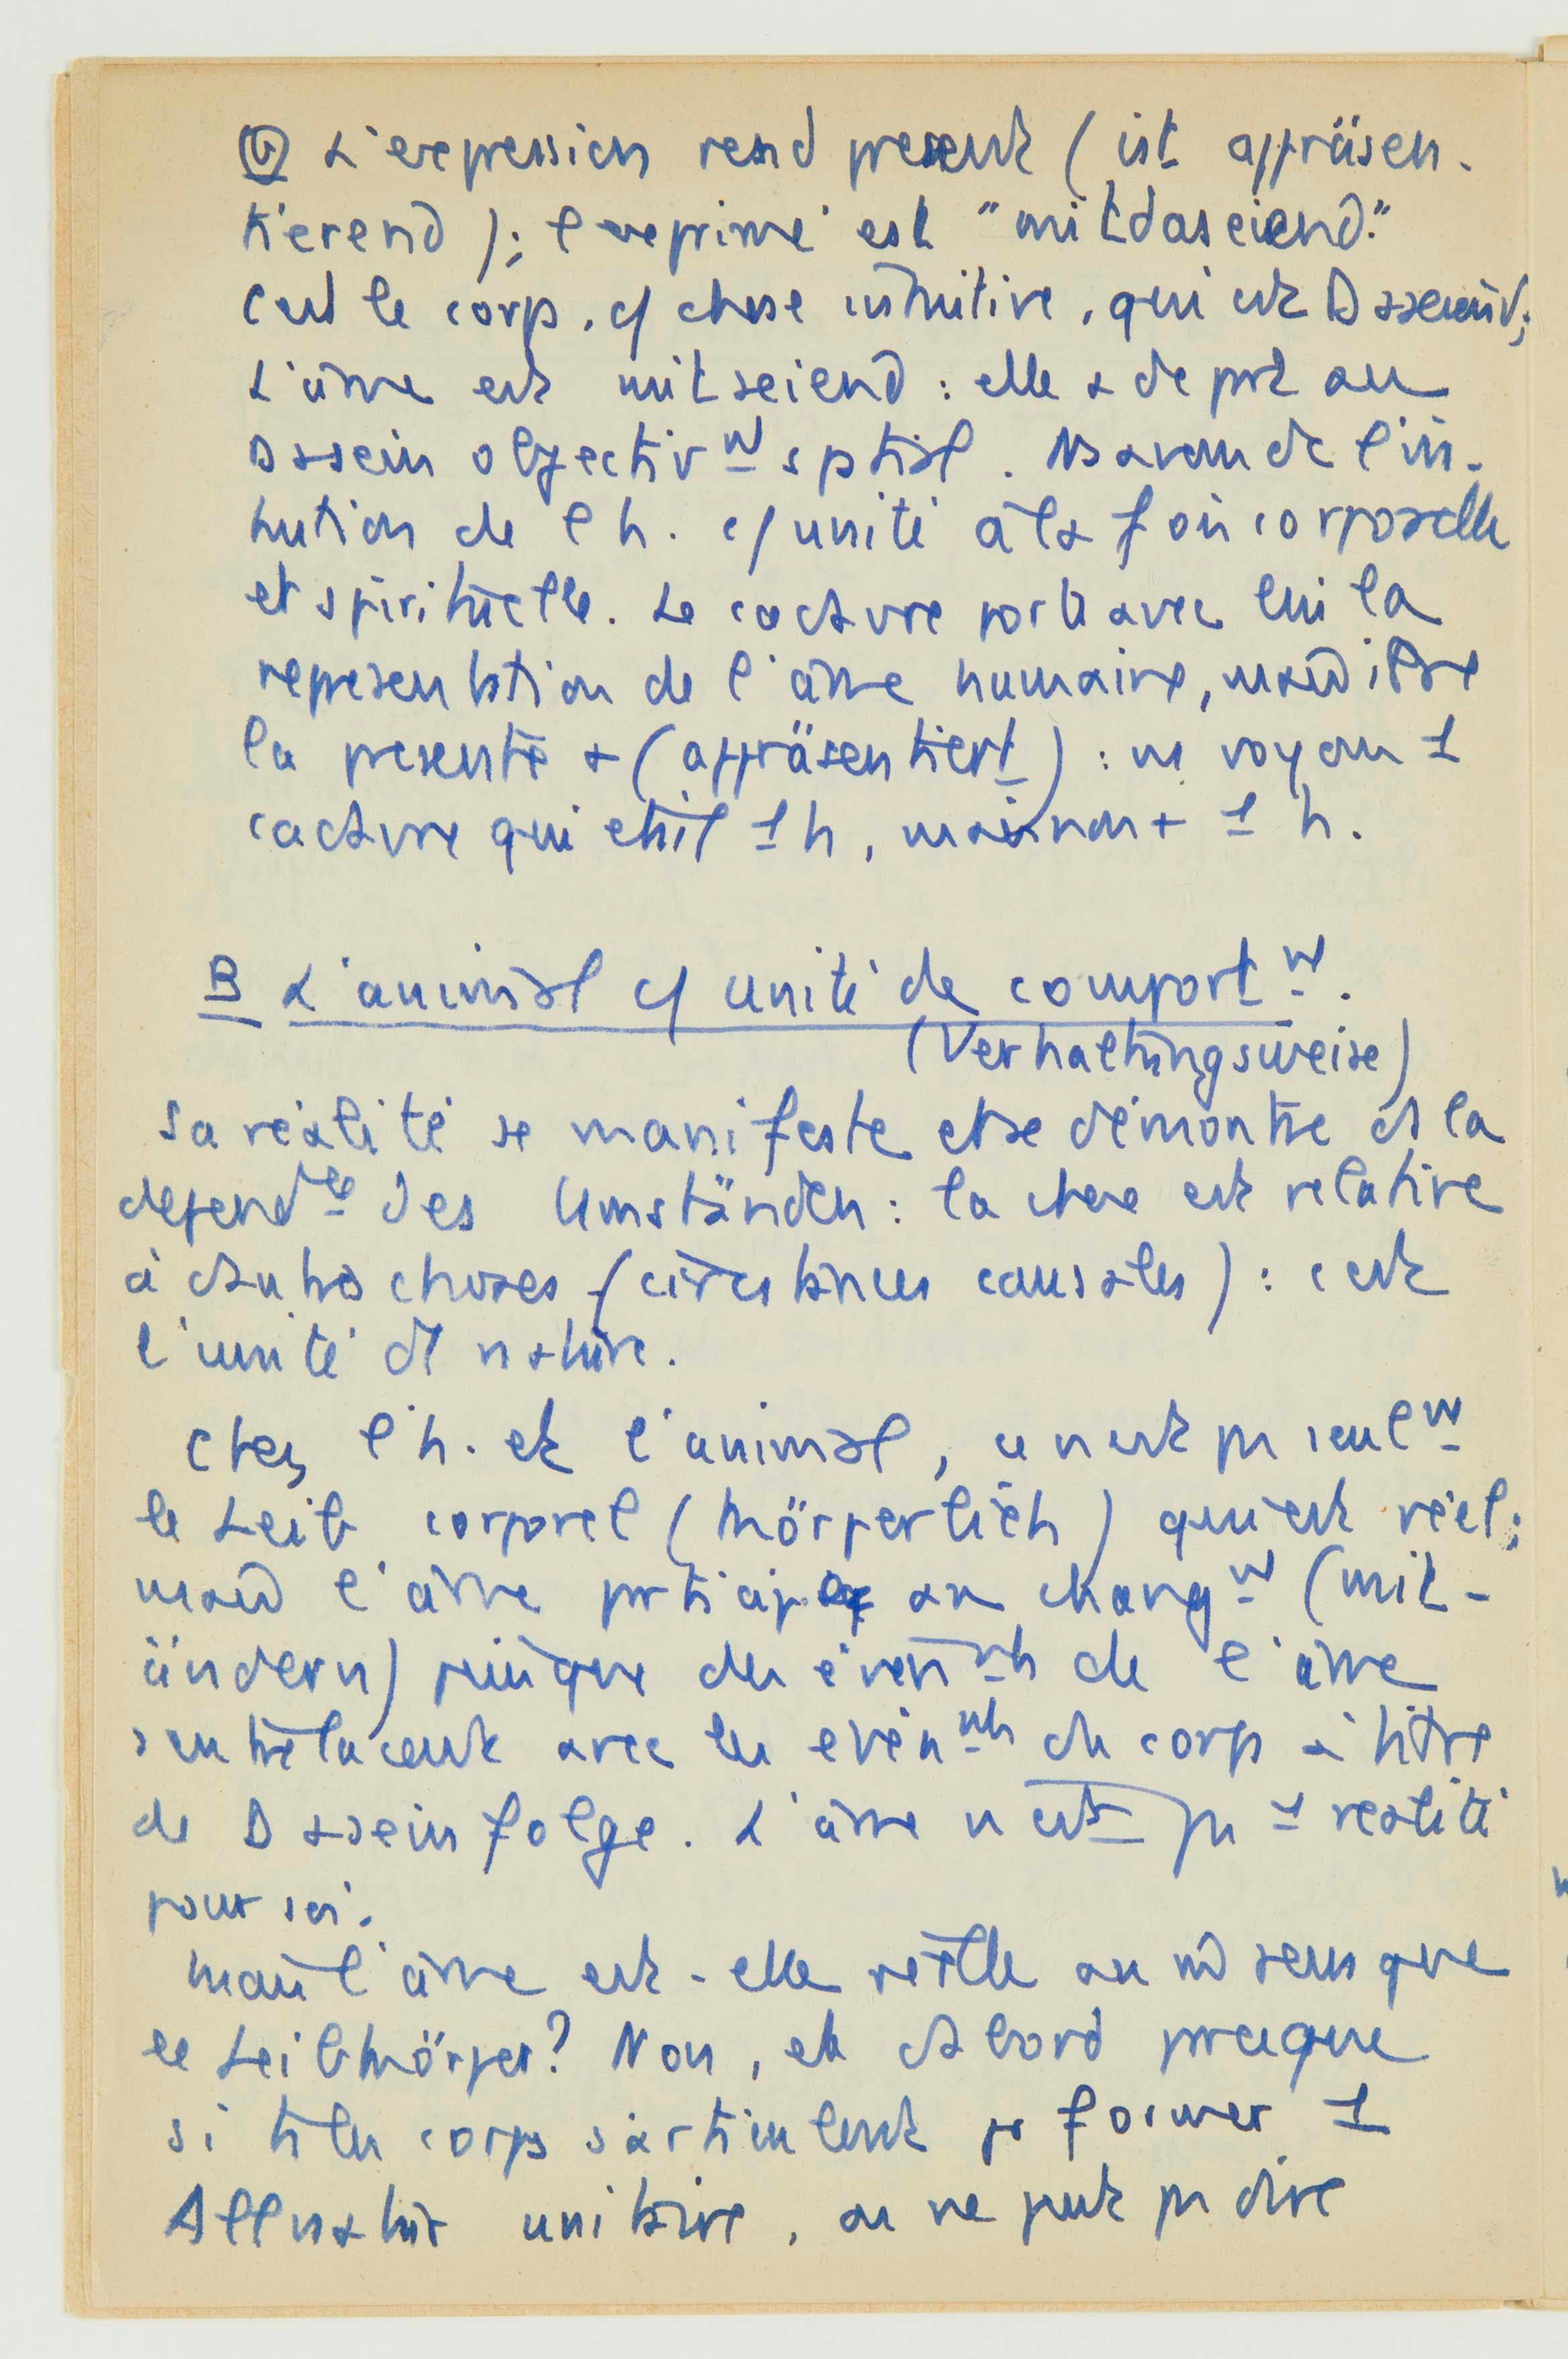 (b) L'expression rend present (ist appräsen-
tierend); l'exprimé est "mitdaseiend."
C'est le corps, c/ chose intuitive, qui est Daseiend;
L'âme est mitseiend : elle a de part au
Dasein objectivt spatial. Ns avons de l'in-
tuition de l'h. c/ unité à la fois corporelle
et spirituelle. Le cadavre porte avec lui la
representation de l'âme humaine, mais il ne
la presente + (appräsentiert) : ns voyons 1
cadavre qui était 1 h, mais non + 1 h.
B L'animal c/ unité de comportt.
(Verhaltungsweise)
Sa réalité se manifeste et se démontre ds la
dependce des Umständen : la chose est relative
à d'autres choses (circstances causales) : c'est
l'unité de nature.
Chez l'h. et l'animal, ce n'est pas seult
le Leib corporel (körperlich) qui est réel;
mais l'âme participe au changt (mit-
ändern) puisque des évents de l'âme
s'entrelacent avec les evénts du corps à titre
de Daseinfolge. L'âme n'est pas 1 realité
pour soi.
Mais l'âme est-elle réelle au m sens que
le Leibkörper? Non, et d'abord parce que
si ts les corps s'articulent pr former 1
Allnatur unitaire, on ne peut pas dire